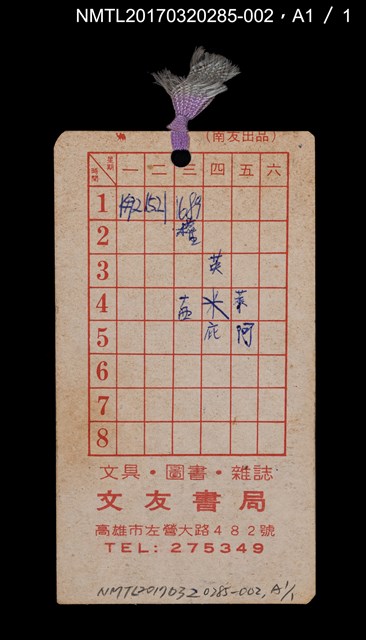 NMTL20170320285-002，A1 / 1
(南友出品)
星期 一 二 三 四 五 六
時間
1 1521 1689
2
3 英
4 西 米 萊
5 庇 阿
6
7
8
文具・圖書・雜誌
文友書局
高雄市左營大路482號
TEL: 275349
NMTL20170320285-002, A1/1